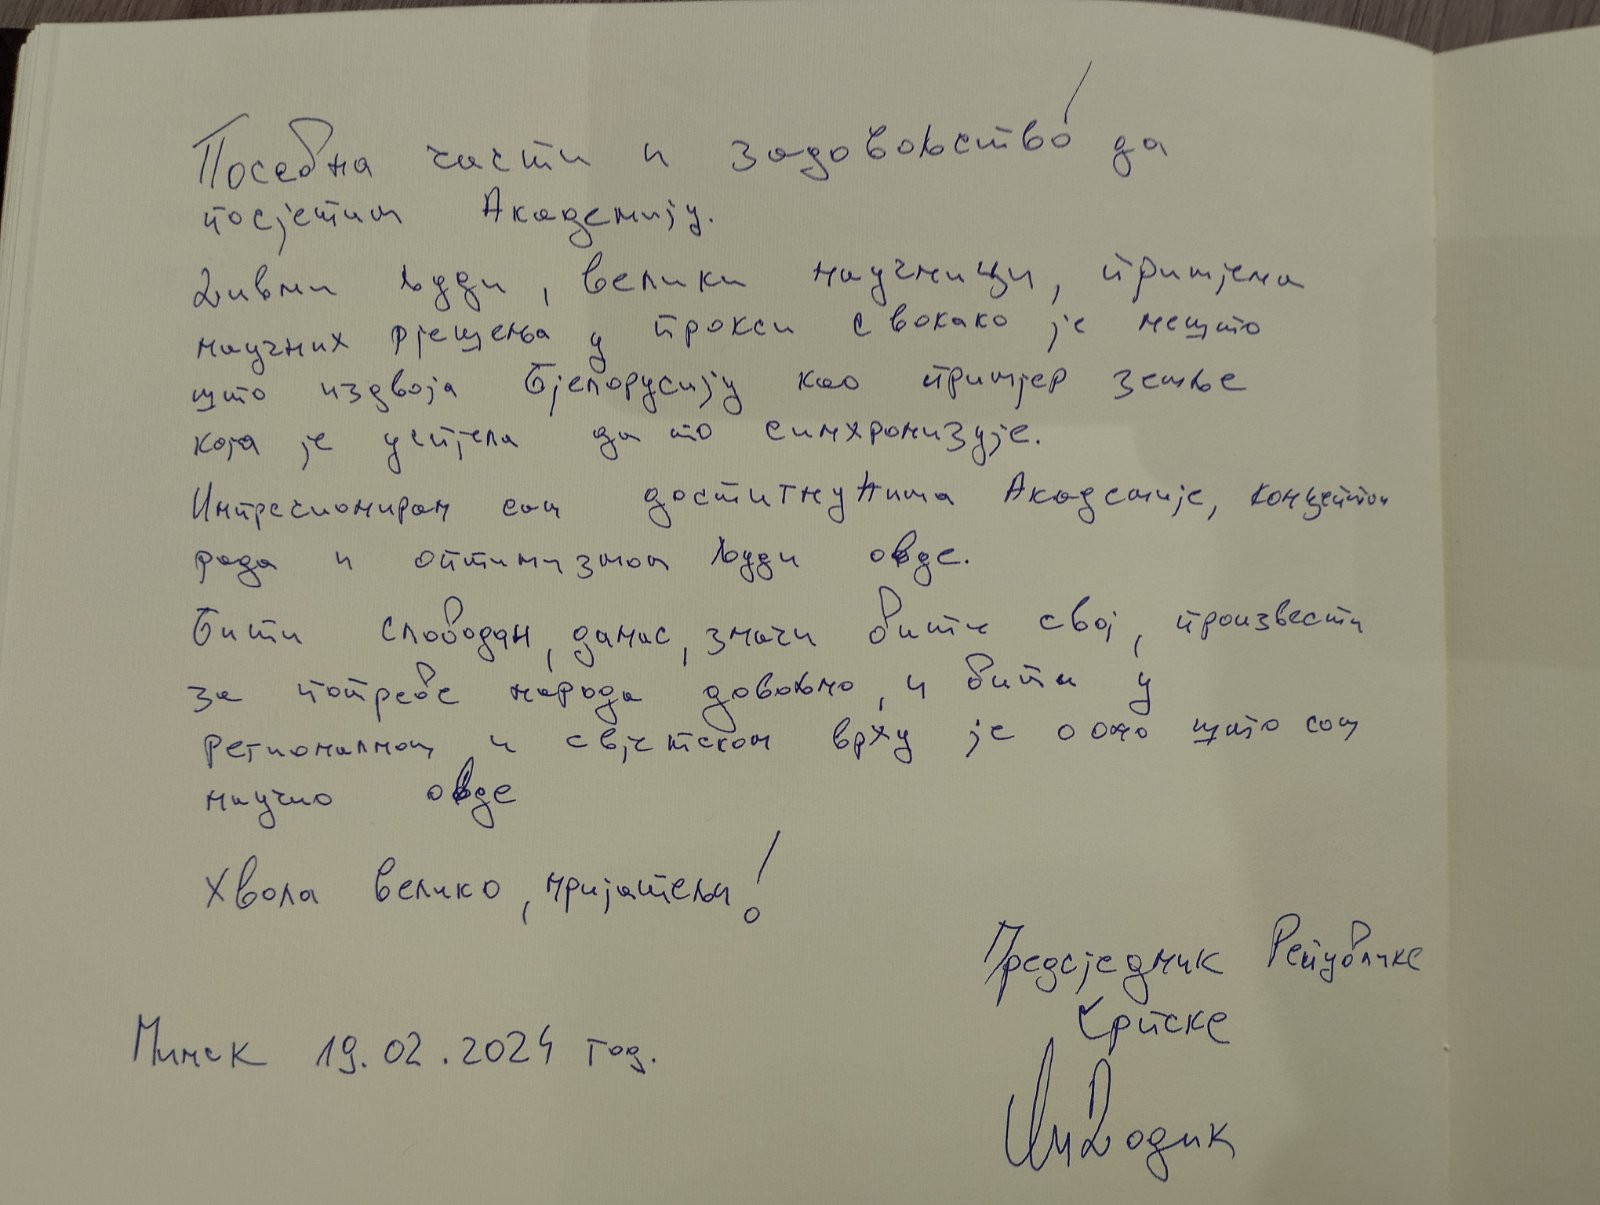 Посебна част и задовољство да
посјетим Академију.
Дивни људи, велики научници, примјена
научних рјешења у пракси свакако је нешто
што издваја Бјелорусију као примјер земље
која је успјела да то синхронизује.
Импресиониран сам достигнућима Академије, концептом
рада и оптимизмом људи овде.
Бити слободан, данас, значи бити свој, произвести
за потребе народа довољно, и бити у
регионалном и свјетском врху је оно што сам
научио овде
Хвала велико, пријатељи!
Предсједник Републике
Српске
Минск 19.02.2024 год.
Додик